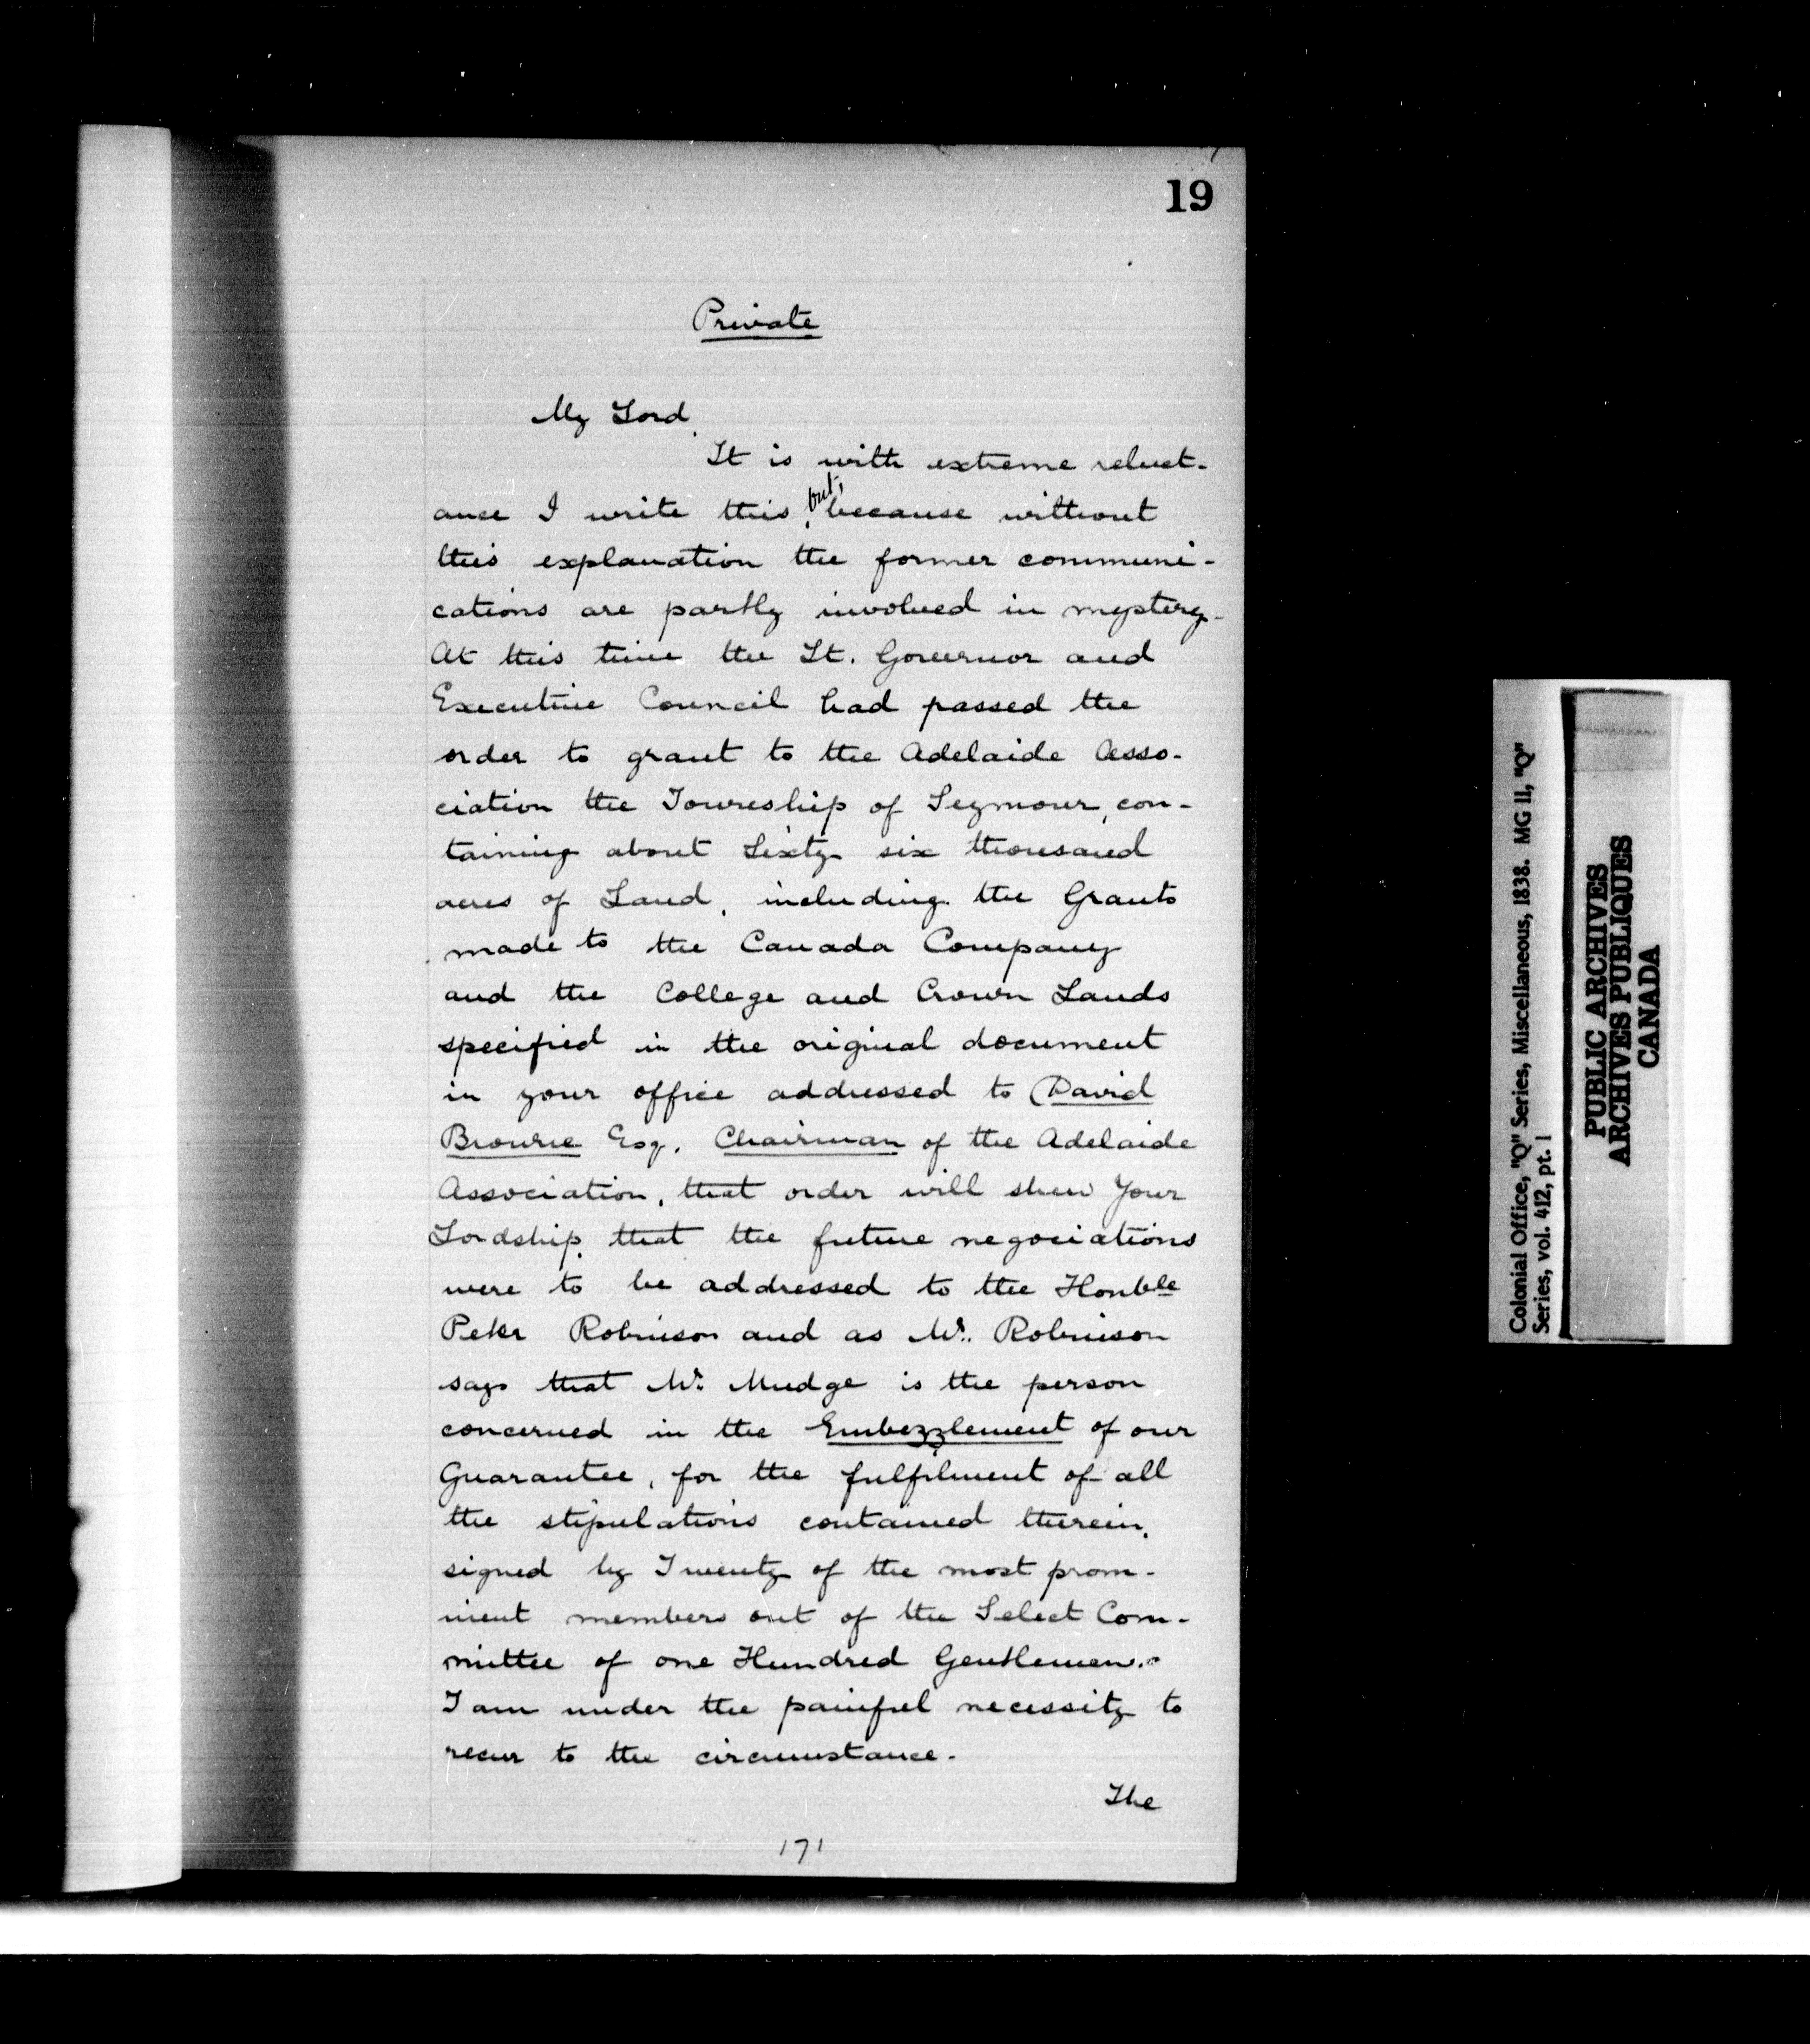 19
Private
My Lord,
It is with extreme reluct-
ance I write this, but, because without
this explanation the former communi-
cations are partly involved in mystery.
At this time the Lt. Governor and
Executive Council had passed the
order to grant to the Adelaide Asso-
ciation the Township of Seymour, con-
taining about Sixty six thousand
acres of Land, including the Grants
made to the Canada Company
and the College and Crown Lands
specified in the original document
in your office addressed to David
Browne Esq. Chairman of the Adelaide
Association, that order will shew Your
Lordship that the future negociations
were to be addressed to the Honble
Peter Robinson and as Mr. Robinson
says that Mr. Mudge is the person
concerned in the Embezzlement of our
Guarantee, for the fulfilment of all
the stipulations contained therein,
signed by Twenty of the most prom-
inent members out of the Select Com-
mittee of one Hundred Gentlemen.
I am under the painful necessity to
recur to the circumstance.
The
171
Colonial Office, "Q" Series, Miscellaneous, 1838. MG 11, "Q"
Series, vol. 412, pt. 1
PUBLIC ARCHIVES
ARCHIVES PUBLIQUES
CANADA